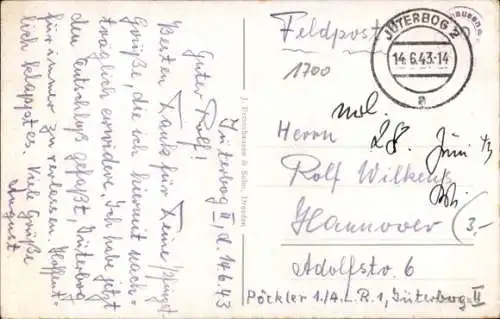 Jüterbog II, d. 14.6.43
Guter Rolf!
Besten Dank für Deine Pfingst-
Grüße, die ich hiermit nach-
träglich erwidere. Ich habe jetzt
den Entschluß gefaßt, Jüterbog
für immer zu verlassen. Hoffent-
lich klappt es. Viele Grüße
August.
Dresden
Feldpost
JÜTERBOG 2
14.6.43-14
a
1700
28. Juni 43
Herrn
Rolf Wilkens
Hannover
3,-
Adolfstr. 6
Pöckler 1./A.L.R.1, Jüterbog II